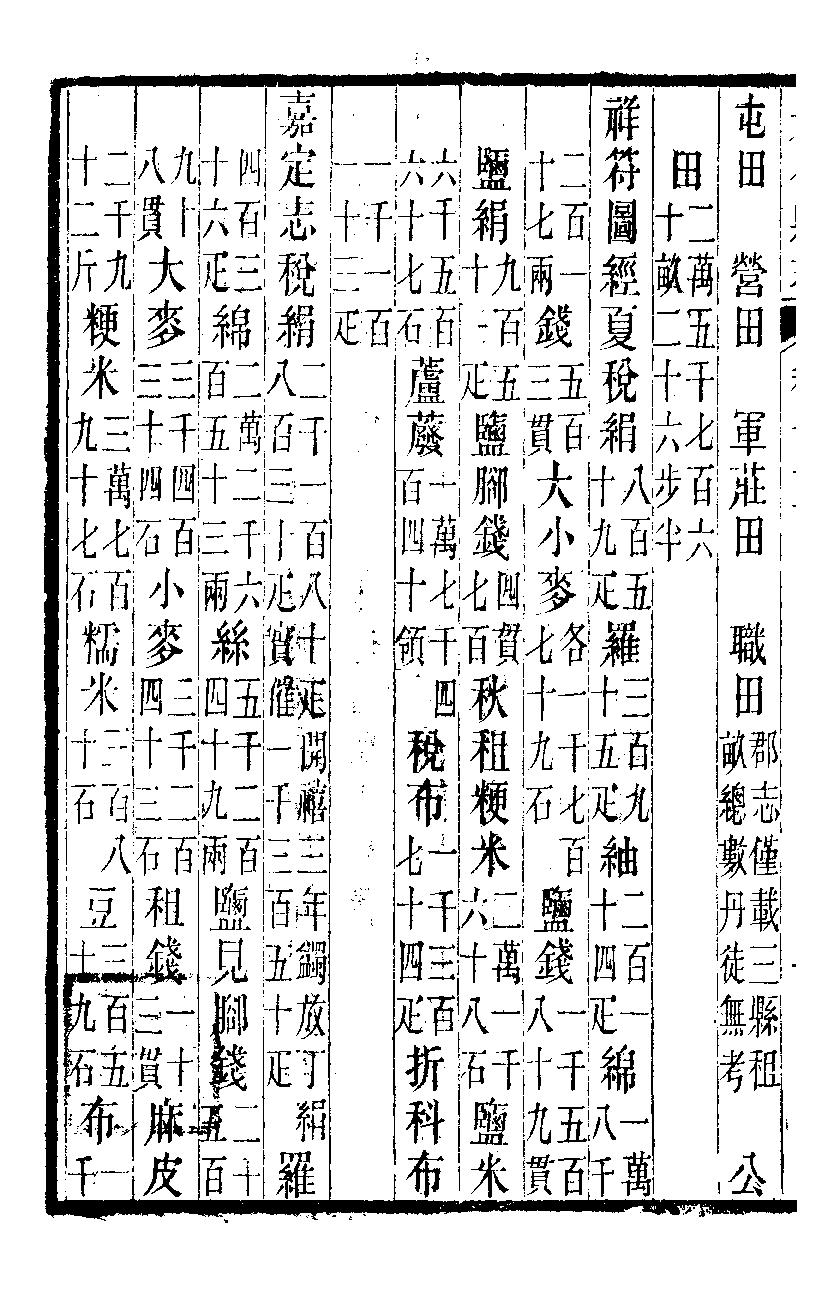 屯田 營田 軍莊田 職田郡志僅載三縣租畝總數丹徒無考 公
田二萬五千七百六十畝二十六步半
祥符圖經夏稅絹八百五十九疋羅三百九十五疋紬二百一十四疋綿一萬八千
二百一十七兩錢五百三貫大小麥各一千七百七十九石鹽錢一千五百八十九貫
鹽絹九百五十一疋鹽腳錢四貫七百秋租粳米二萬一千六十八石鹽米
六千五百六十七石蘆蕟一萬七千四百四十領稅布一千三百七十四疋折科布
一千一百一十三疋
嘉定志稅絹二千一百八十疋開禧三年蠲放丁絹八百三十疋實催一千三百五十疋羅
四百三十六疋綿二萬二千六百五十三兩絲五千二百四十九兩鹽見腳錢二十五百
九十八貫大麥三千四百三十四石小麥三千二百四十三石租錢一十三貫麻皮
二千九十二斤粳米三萬七百九十七石糯米三百八十石豆三百五十九石布一千